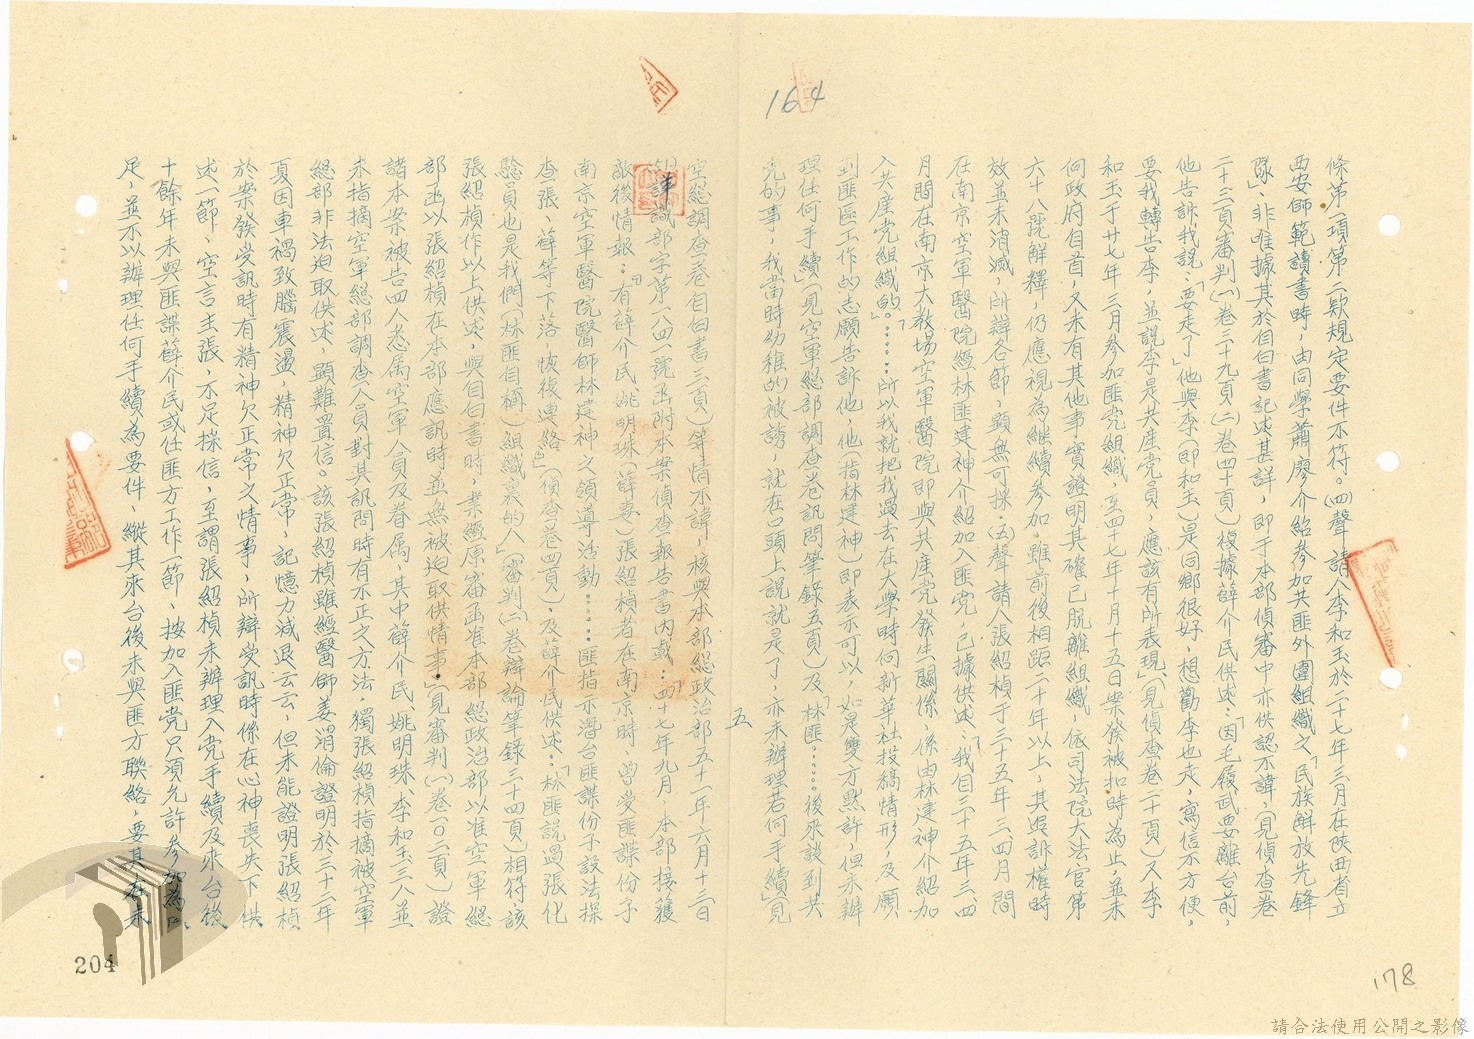 164
條第一項第二款規定要件不符。(四)聲請人李和玉於二十七年三月在陝西省立
西安師範讀書時,由同學蕭廖介紹參加共匪外圍組織之「民族解放先鋒
隊」、非唯據其於自白書記述甚詳,即于本部偵審中亦供認不諱,(見偵查卷
二十三頁審判(一)卷三十九頁(二)卷四十頁)複據薛介民供述:「因毛鍰武要離台前,
他告訴我說:「要走了」他與李(即和玉)是同鄉很好,想勸李也走,寫信不方便,
要我轉告李,並說李是共產党員,應該有所表現」(見偵查卷二十頁)又李
和玉于廿七年三月參加匪党組織,至四十七年十月十五日案發被扣時為止,並未
向政府自首,又未有其他事實證明其確已脫離組織,依司法院大法官第
六十八號解釋,仍應視為繼續參加。雖前後相距二十年以上,其追訴權時
效並未消滅,所辯各節,顯無可採。(五)聲請人張紹楨于三十五年三、四月間
在南京空軍醫院經林匪建神介紹加入匪党,已據供述:「我自三十五年三、四
月間在南京大教場空軍醫院即與共產党發生關係,係由林建神介紹加
入共產党組織的。」……所以我就把我過去在大學時向新華社投稿情形,及願
到匪區工作的志願告訴他,他(指林建神)即表示可以,如是雙方默許,但未辦
理任何手續」(見空軍總部調查卷訊問筆錄五頁)及「林匪……後來談到共
党的事,我當時幼稚的被誘,就在口頭上說就是了,亦未辦理若何手續」(見
五
空總調查卷自白書三頁)等情不諱,核與本部總政治部五十一年六月十三日
詳識部字第一八四一號函附本案偵查報告書內載:「四十七年九月,本部接獲
敵後情報:『有薛介民姚明珠(薛妻)張紹楨者在南京時,曾受匪諜份子
南京空軍醫院醫師林建神之領導活動……匪指示潛台匪諜份子設法探
查張、薛等下落,恢復連絡』」(偵查卷四頁),及薛介民供述:「林匪說過張化
驗員也是我們(林匪自稱)組織裏的人」(審判(二)卷辯論筆錄三十四頁)相符,該
張紹楨作以上供述,與自白書時,業經原審函准本部總政治部以准空軍總
部函以張紹楨在本部應訊時並無被迫取供情事」(見審判(一)卷一〇二頁)證
諸本案被告四人悉属空軍人員及眷属,其中薛介民、姚明珠、李和玉三人並
未指摘空軍總部調查人員對其訊問時有不正之方法,獨張紹楨指摘被空軍
總部非法迫取供述,顯難置信。該張紹楨雖經醫師姜渭倫證明於三十三年
夏因車禍致腦震盪,精神欠正常,記憶力減退云云,但未能證明張紹楨
於案發受訊時有精神欠正常之情事,所辯受訊時係在心神喪失下供
述一節,空言主張,不足採信,至謂張紹楨未辦理入党手續及來台後
十餘年未與匪諜薛介民或任匪方工作一節、按加入匪党只須允許參加為已
足,並不以辦理任何手續為要件、縱其來台後未與匪方聯絡,要其在未
204
178
請合法使用公開之影像